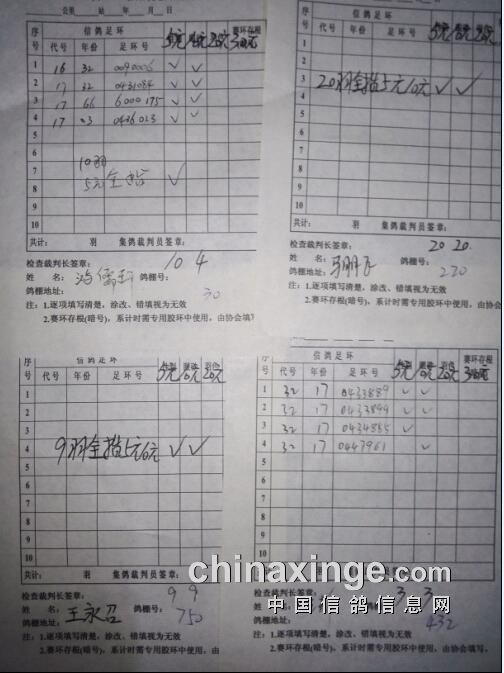 公里 站 年 月 日
序号 信鸽足环 赛环存根
代号 年份 足环号 5元 10元 20元
1 16 32 0090006 √ √
2 17 32 0431084 √ √
3 17 66 6000175 √ √
4 17 03 0436023 √ √
5
6
7 10羽
8 5元全指 √
9
10
共计: 羽 集鸽裁判员签章:
检查裁判长签章: 10 4
姓 名: 鸽棚号:
鸽棚地址: 30
注: 1.逐项填写清楚,涂改、错填视为无效
2.赛环存根(暗号),系计时需专用胶环中使用,由协会填
序号 信鸽足环 赛环存根
代号 年份 足环号
1
2
3 20羽全指5元10元 √ √
4
5
6
7
8
9
10
共计: 羽 集鸽裁判员签章:
检查裁判长签章: 20 20
姓 名: 鸽棚号:
鸽棚地址: 230
注: 1.逐项填写清楚,涂改、错填视为无效
2.赛环存根(暗号),系计时需专用胶环中使用,由协会
序号 信鸽足环
代号 年份 足环号 5元 10元 20元
1
2
3
4 9羽全指5元10元 √ √
5
6
7
8
9
10
共计: 羽 集鸽裁判员签章:
检查裁判长签章: 9 9
姓 名: 王永召 鸽棚号:
鸽棚地址: 750
注: 1.逐项填写清楚,涂改、错填视为无效
2.赛环存根(暗号),系计时需专用胶环中使用,由
序号 信鸽足环 赛环存根
代号 年份 足环号 5元 10元 20元
1 32 17 0433889 √ √
2 32 17 0433899 √ √
3 32 17 0434885 √ √
4 32 17 0447961 √
5
6
7
8
9
10
共计:
检查裁判长签章: 3 3
姓 名:
鸽棚地址: 432
注: 1.逐项填写清楚,涂改、错填视为无效
2.赛环存根(暗号),系计时需专用胶环中使用,由协会
chinaxinge.com
中国信鸽信息网